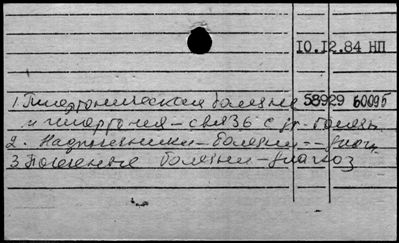 10.12.84 НП
1. Гипертоническая болезнь 58929 60095
и гипертония - связь с др. болезн.
2. Надпочечники - болезни - - диагн.
3 Почечные болезни - диагноз